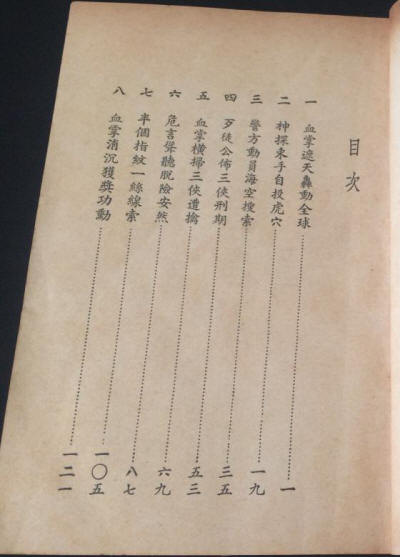 目次
一 血掌遮天轟動全球……一
二 神探束手自投虎穴……一九
三 警方動員海空搜索……三五
四 歹徒公佈三俠刑期……五三
五 血掌橫掃三俠遭擒……六九
六 危言聳聽脫險安然……八七
七 半個指紋一絲線索……一〇五
八 血掌消沉獲獎功動……一二一